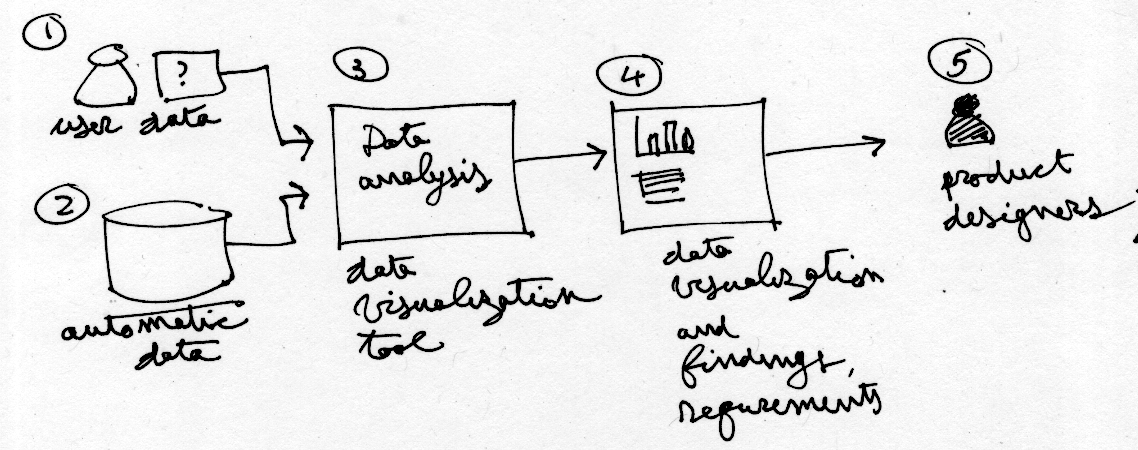 1
?
user data
2
automatic
data
3
Data
analysis
data
visualization
tool
4
data
visualization
and
findings,
requirements
5
product
designers